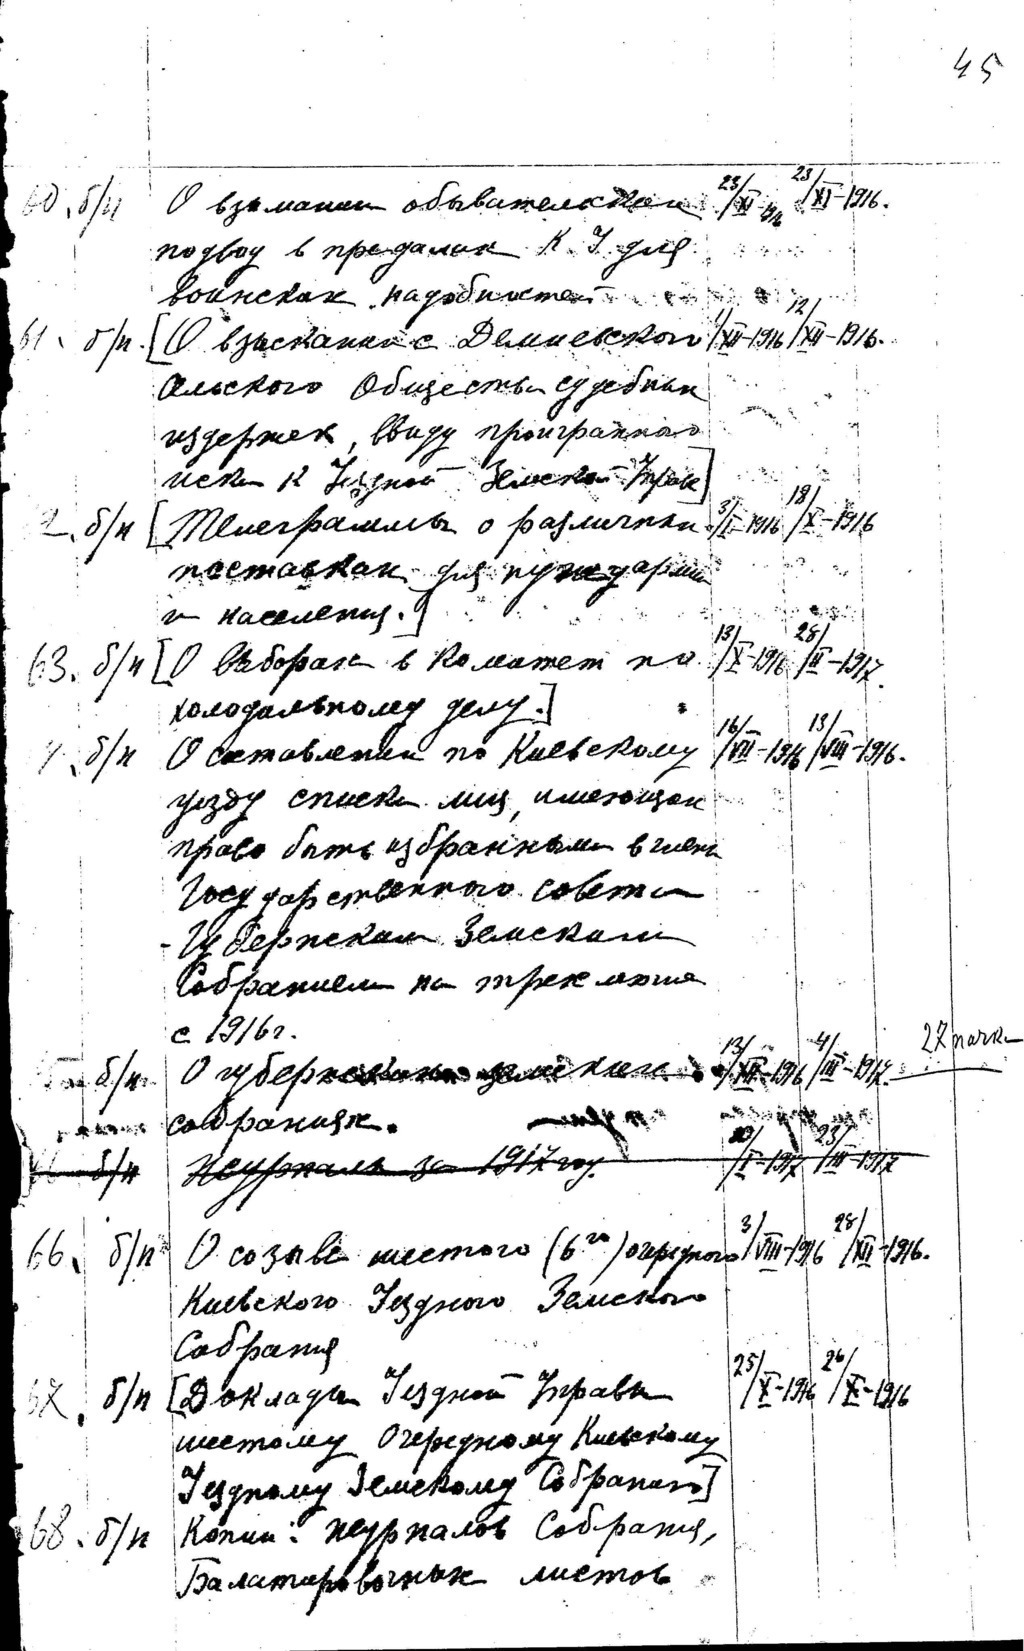 45
60. б/н О взимании обывательских 23/XI-1916 23/XI-1916.
подвод в пределах К. У. для
воинских надобностей
61. б/н. [О взыскании с Демиевского 1/XII-1916 12/XII-1916.
сельского Общества судебных
издержек, ввиду проигранного
иска к Уездной Земской Управе]
2. б/н [Телеграммы о различных 3/I-1916 18/X-1916
поставках для нужд армии
и населения.]
63. б/н [О выборах в Комитет по 13/X-1916 28/II-1917.
холодильному делу.]
4. б/н О составлении по Киевскому 16/VII-1916 13/VIII-1916.
уезду списка лиц, имеющих
право быть избранными в члены
Государственного совета
Губернским Земским
Собранием на трехлетие
с 1916г.
б/н О губернских земских 13/XII-1916 4/III-1917. 27 пачка
собраниях.
б/н Журналы за 1917 год. 10/I-1917 23/III-1917
66. б/н О созыве шестого (6го) очередного 3/VIII-1916 28/XII-1916.
Киевского Уездного Земского
Собрания
67. б/н [Доклады Уездной Управы 25/X-1916 26/X-1916
шестому Очередному Киевскому
Уездному Земскому Собранию]
68. б/н Копии: журналов Собрания,
Балатировочных листов